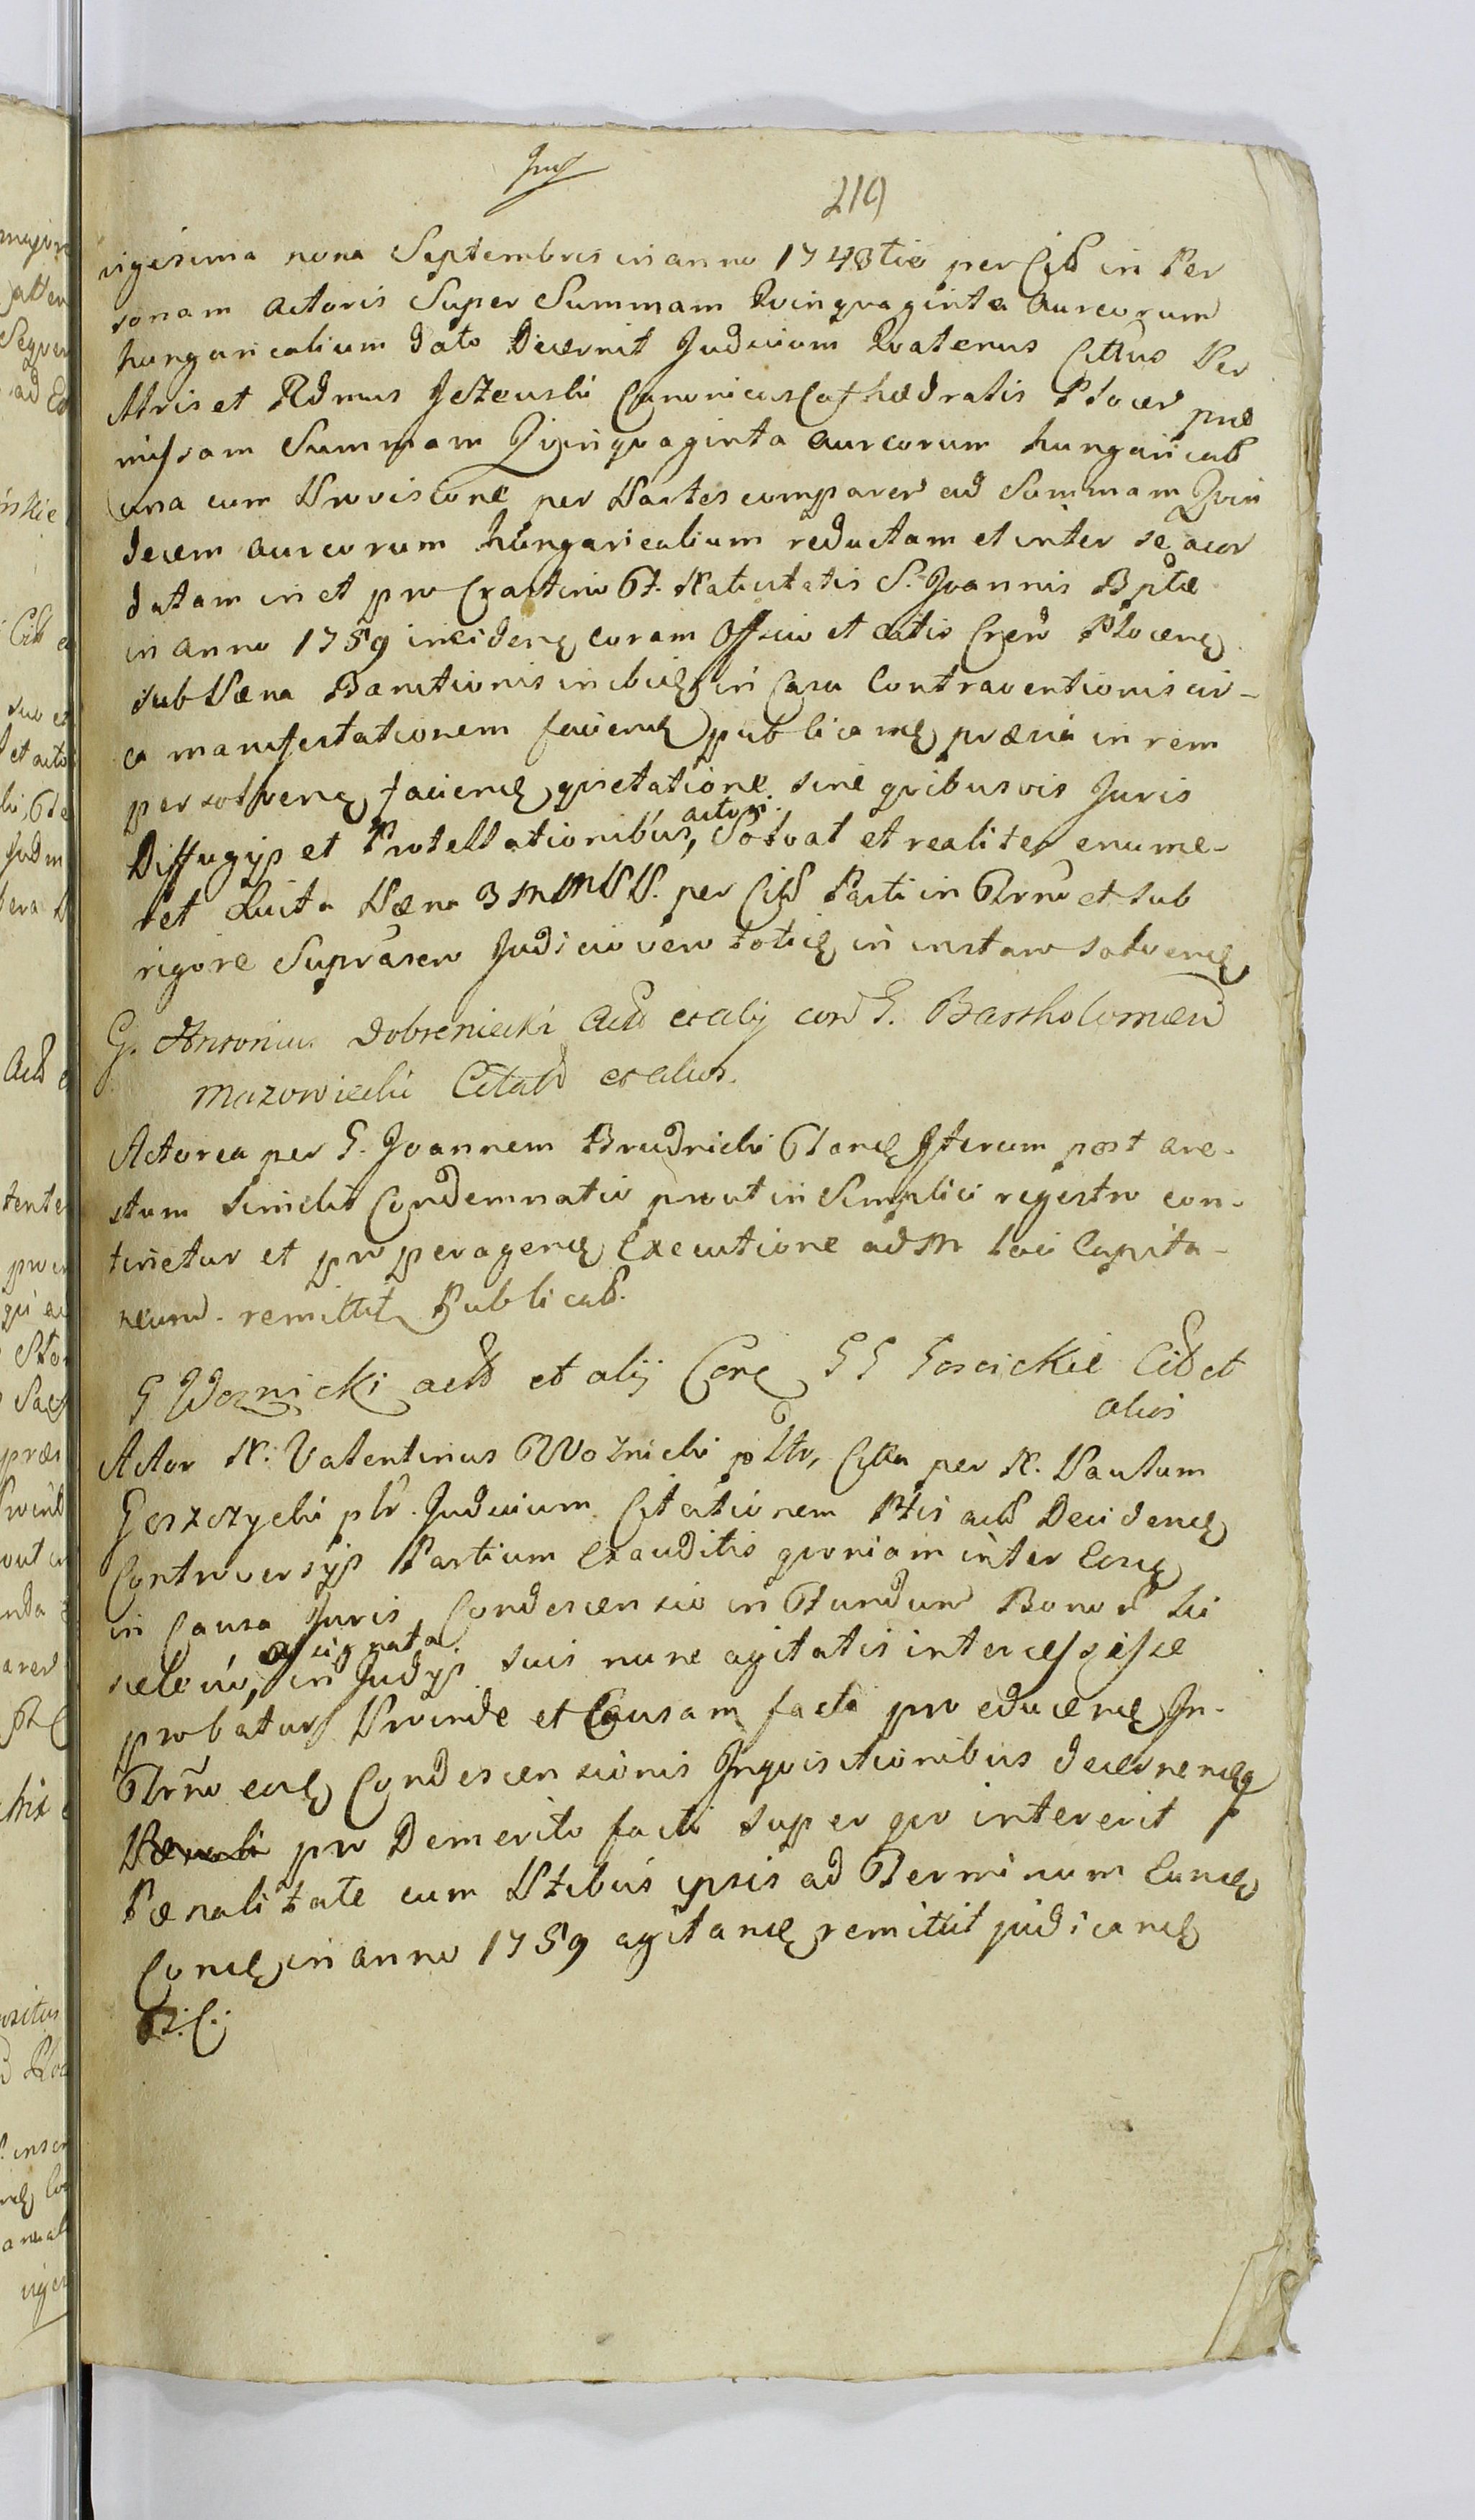 219
vigesima nona Septembris in anno 1748tio per Citt in Per
sonam actoris Super Summam Quinquaginta Aureorum
hungaricalium dato Decernit Judicium Quatenus Cittus Per
Illris et Rdmus Jeżewski Canonicus Cathædralis Plocen præ
missam Summam Quinquaginta aureorum hungarical
una cum Provisione per Partes comparen ad Summam Quin
decem aureorum hungaricalium reductam et inter se acor
datam in et pro Crastino Nativitatis S. Joannis Bptæ
in anno 1759 inciden coram Officio et actis Cren Plocen
sub Pæna Bannitionis in casu Contraventionis cir-
ca manifestationem facien publican prævia in rem
persolven facien quietatione sine quibusvis Juris
Diffugys et Protestationibus, actori Solvat et realiter enume-
ret Luita Pæna 3 M M PP. per Citt Parti in Trno et sub
rigore Suprascr Judicio vero toties in instan solven
G. Antonius Dobrzeniecki Act et alij con G. Bartholomæu
Mazowiecki Citat et alios.
Actorea per G. Joannem Brudnicki iterum post are-
stum similis Condemnatio prout in Simplici regestro con-
tinetur et pro peragen Executione ad M loci Capita-
neum remittit Publicat.
G Woznicki act et alij Con GG Goscickie Cit et
alios
Actor N. Valentinus Woźnicki p Ptr, Citta per N. Paulum
Goszczycki ptr. Judicium Citationem Ptis act Deciden
Controversys Partium Exauditis quoniam inter
in Causa Juris, Condescensio in Fundum Bonor
asignata in Judys suis nunc agitatis intercessisse
probatur Proinde et Causam facti pro educen In-
Trno Condescensionis Inquisitionibus decernen
pro Demerito facti super quo intererit
Pænalitate cum Ptibus ipsis ad Terminum
in anno 1759 agitan remittit judican